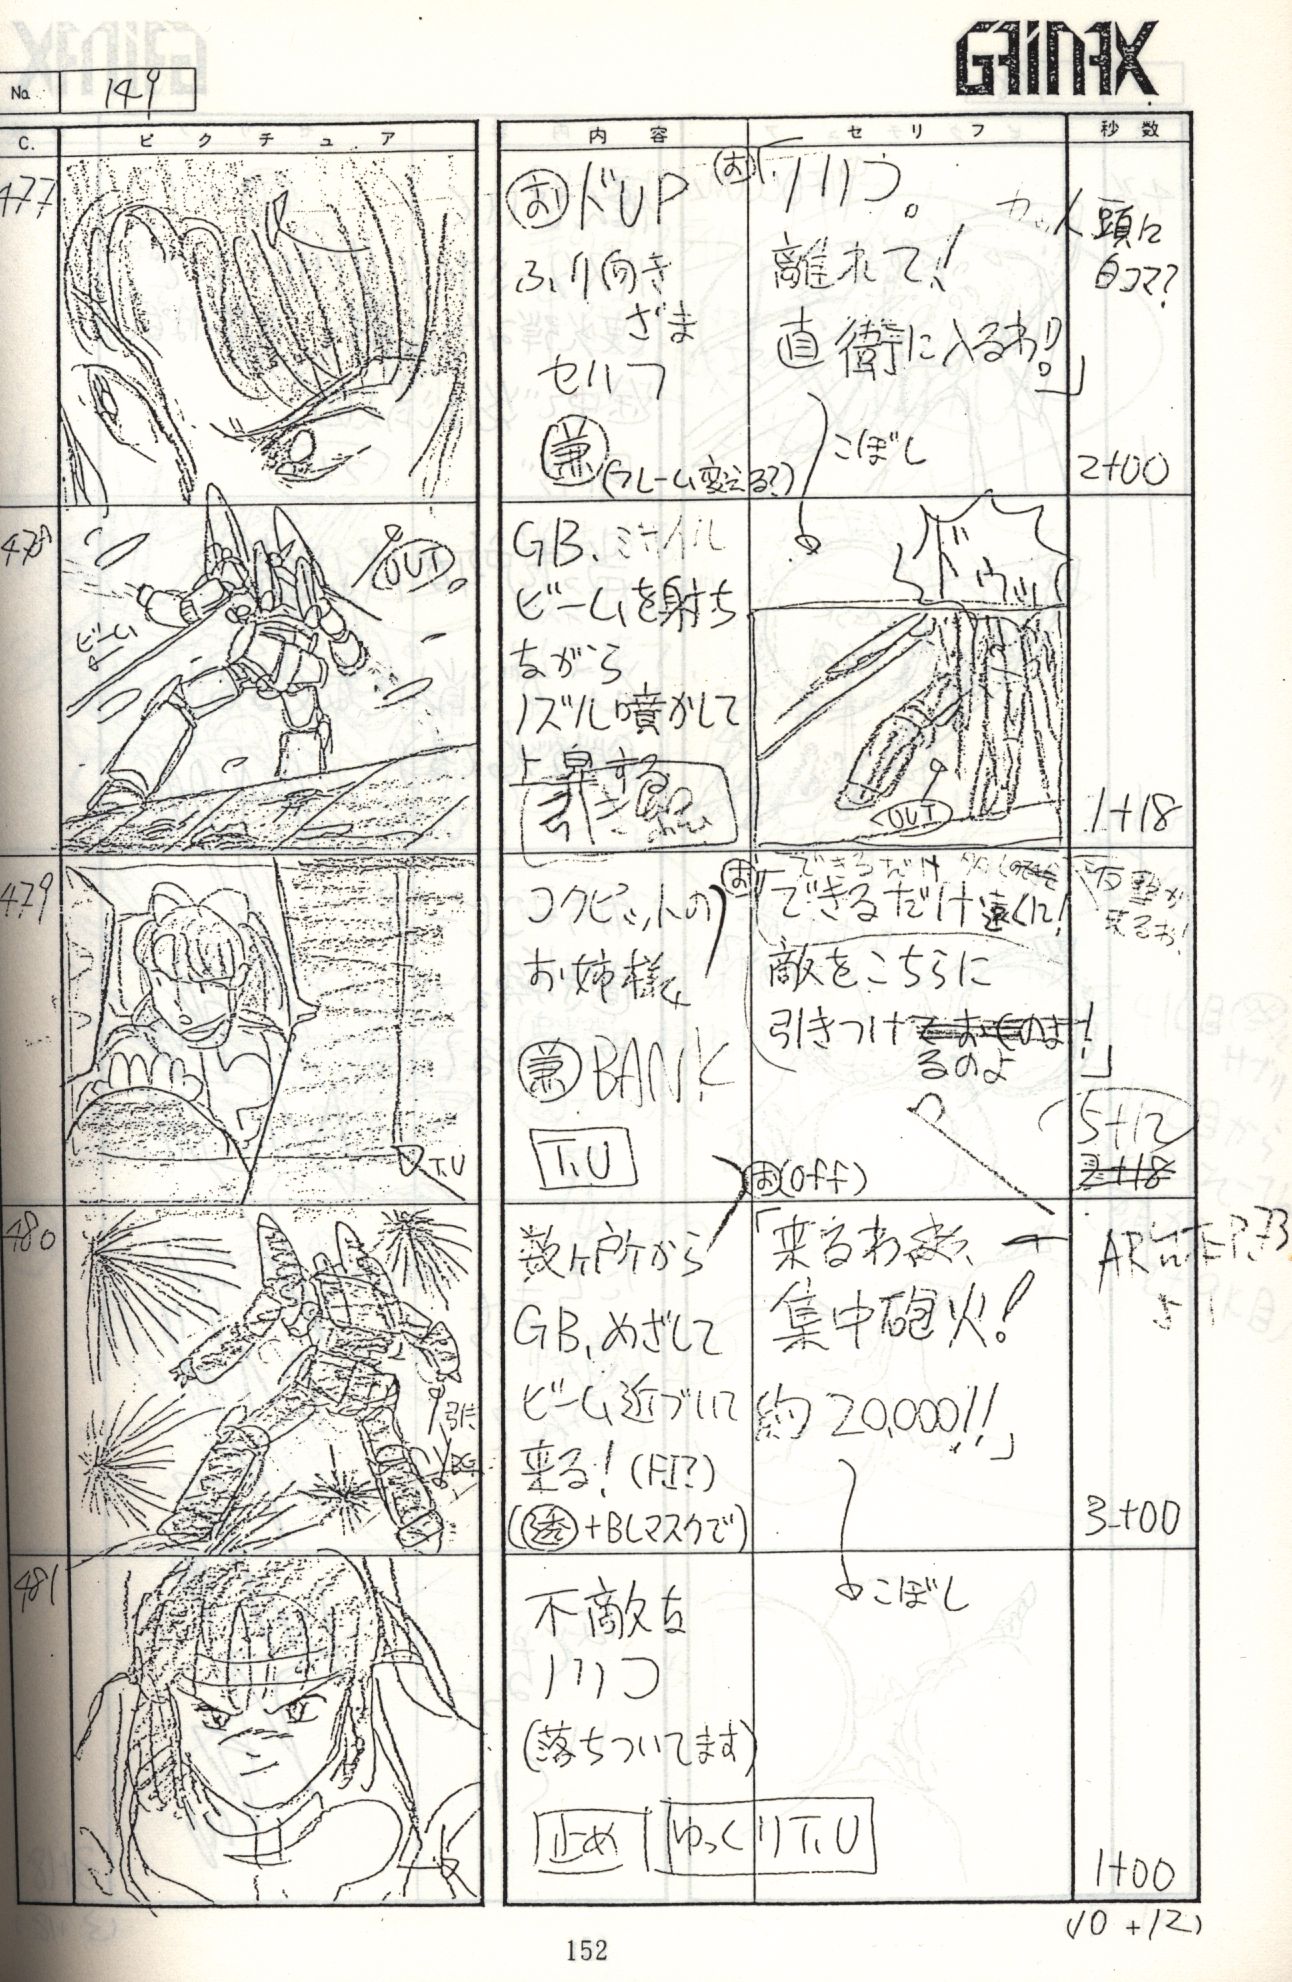 GAINAX
No. 149
C. ピクチュア 内容 セリフ 秒数
477
お ドUP
ふり向き
ざま
セリフ
兼
(フレーム変える?)
お「ノリコ。
離れて!
直衛に入るわ!!」
こぼし
頭に
白コマ?
2+00
478
OUT
ビーム
GB、ミサイル
ビームを射ち
ながら
ノズル噴かして
上昇する
ドウッ
OUT
1+18
479
T.U
コクピットの
お姉様
兼 BANK
T.U
お「できるだけ遠くに!
敵をこちらに
引きつけ
るのよ!」
反撃が
来るわ!
5+12
2+18
480
引き
BG
数ヶ所から
GB、めざして
ビーム近づいて
来る!(FI?)
(透+BLマスクで)
お(off)
「来るわ
集中砲火!
約20,000!!」
こぼし
3+00
481
不敵な
ノリコ
(落ちついてます)
止め ゆっくりT.U
1+00
(10+12)
152